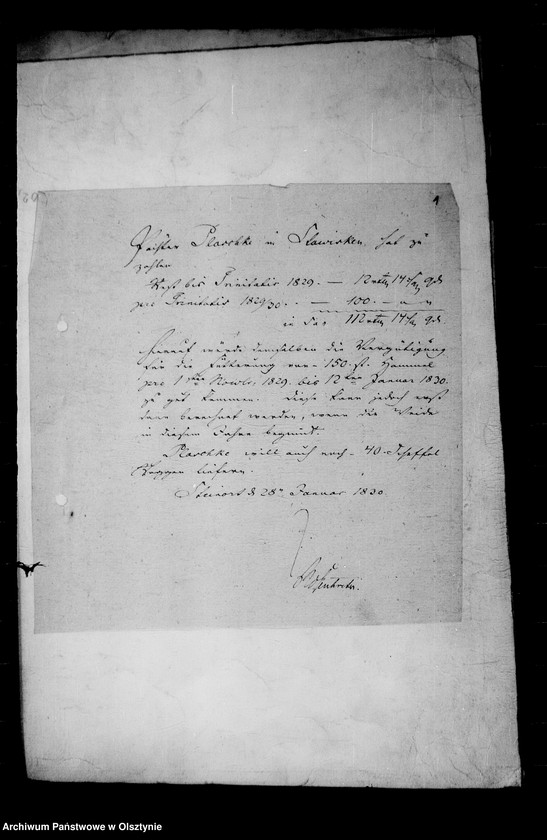 4
Pächter Plaschke in Stawisken hat zu
zahlen
Rest bis Trinitatis 1829. — 12 rtl 14 Sg 9 d
pro Trinitatis 1829/30. . — 100. - " "
in Sa 112 rtl 14 Sg 9 d.
Hierauf würde demselben die Vergütigung
für die Fütterung von 150 St. Hammel
pro 1ten Novbr. 1829. bis 12ten Januar 1830.
zu gut kommen. Diese kann jedoch erst
dann berechnet werden, wenn die Weide
in diesem Jahre beginnt.
Plaschke will auch noch 40 Scheffel
Roggen liefern.
Steinort d 28n Januar 1830
Archiwum Państwowe w Olsztynie